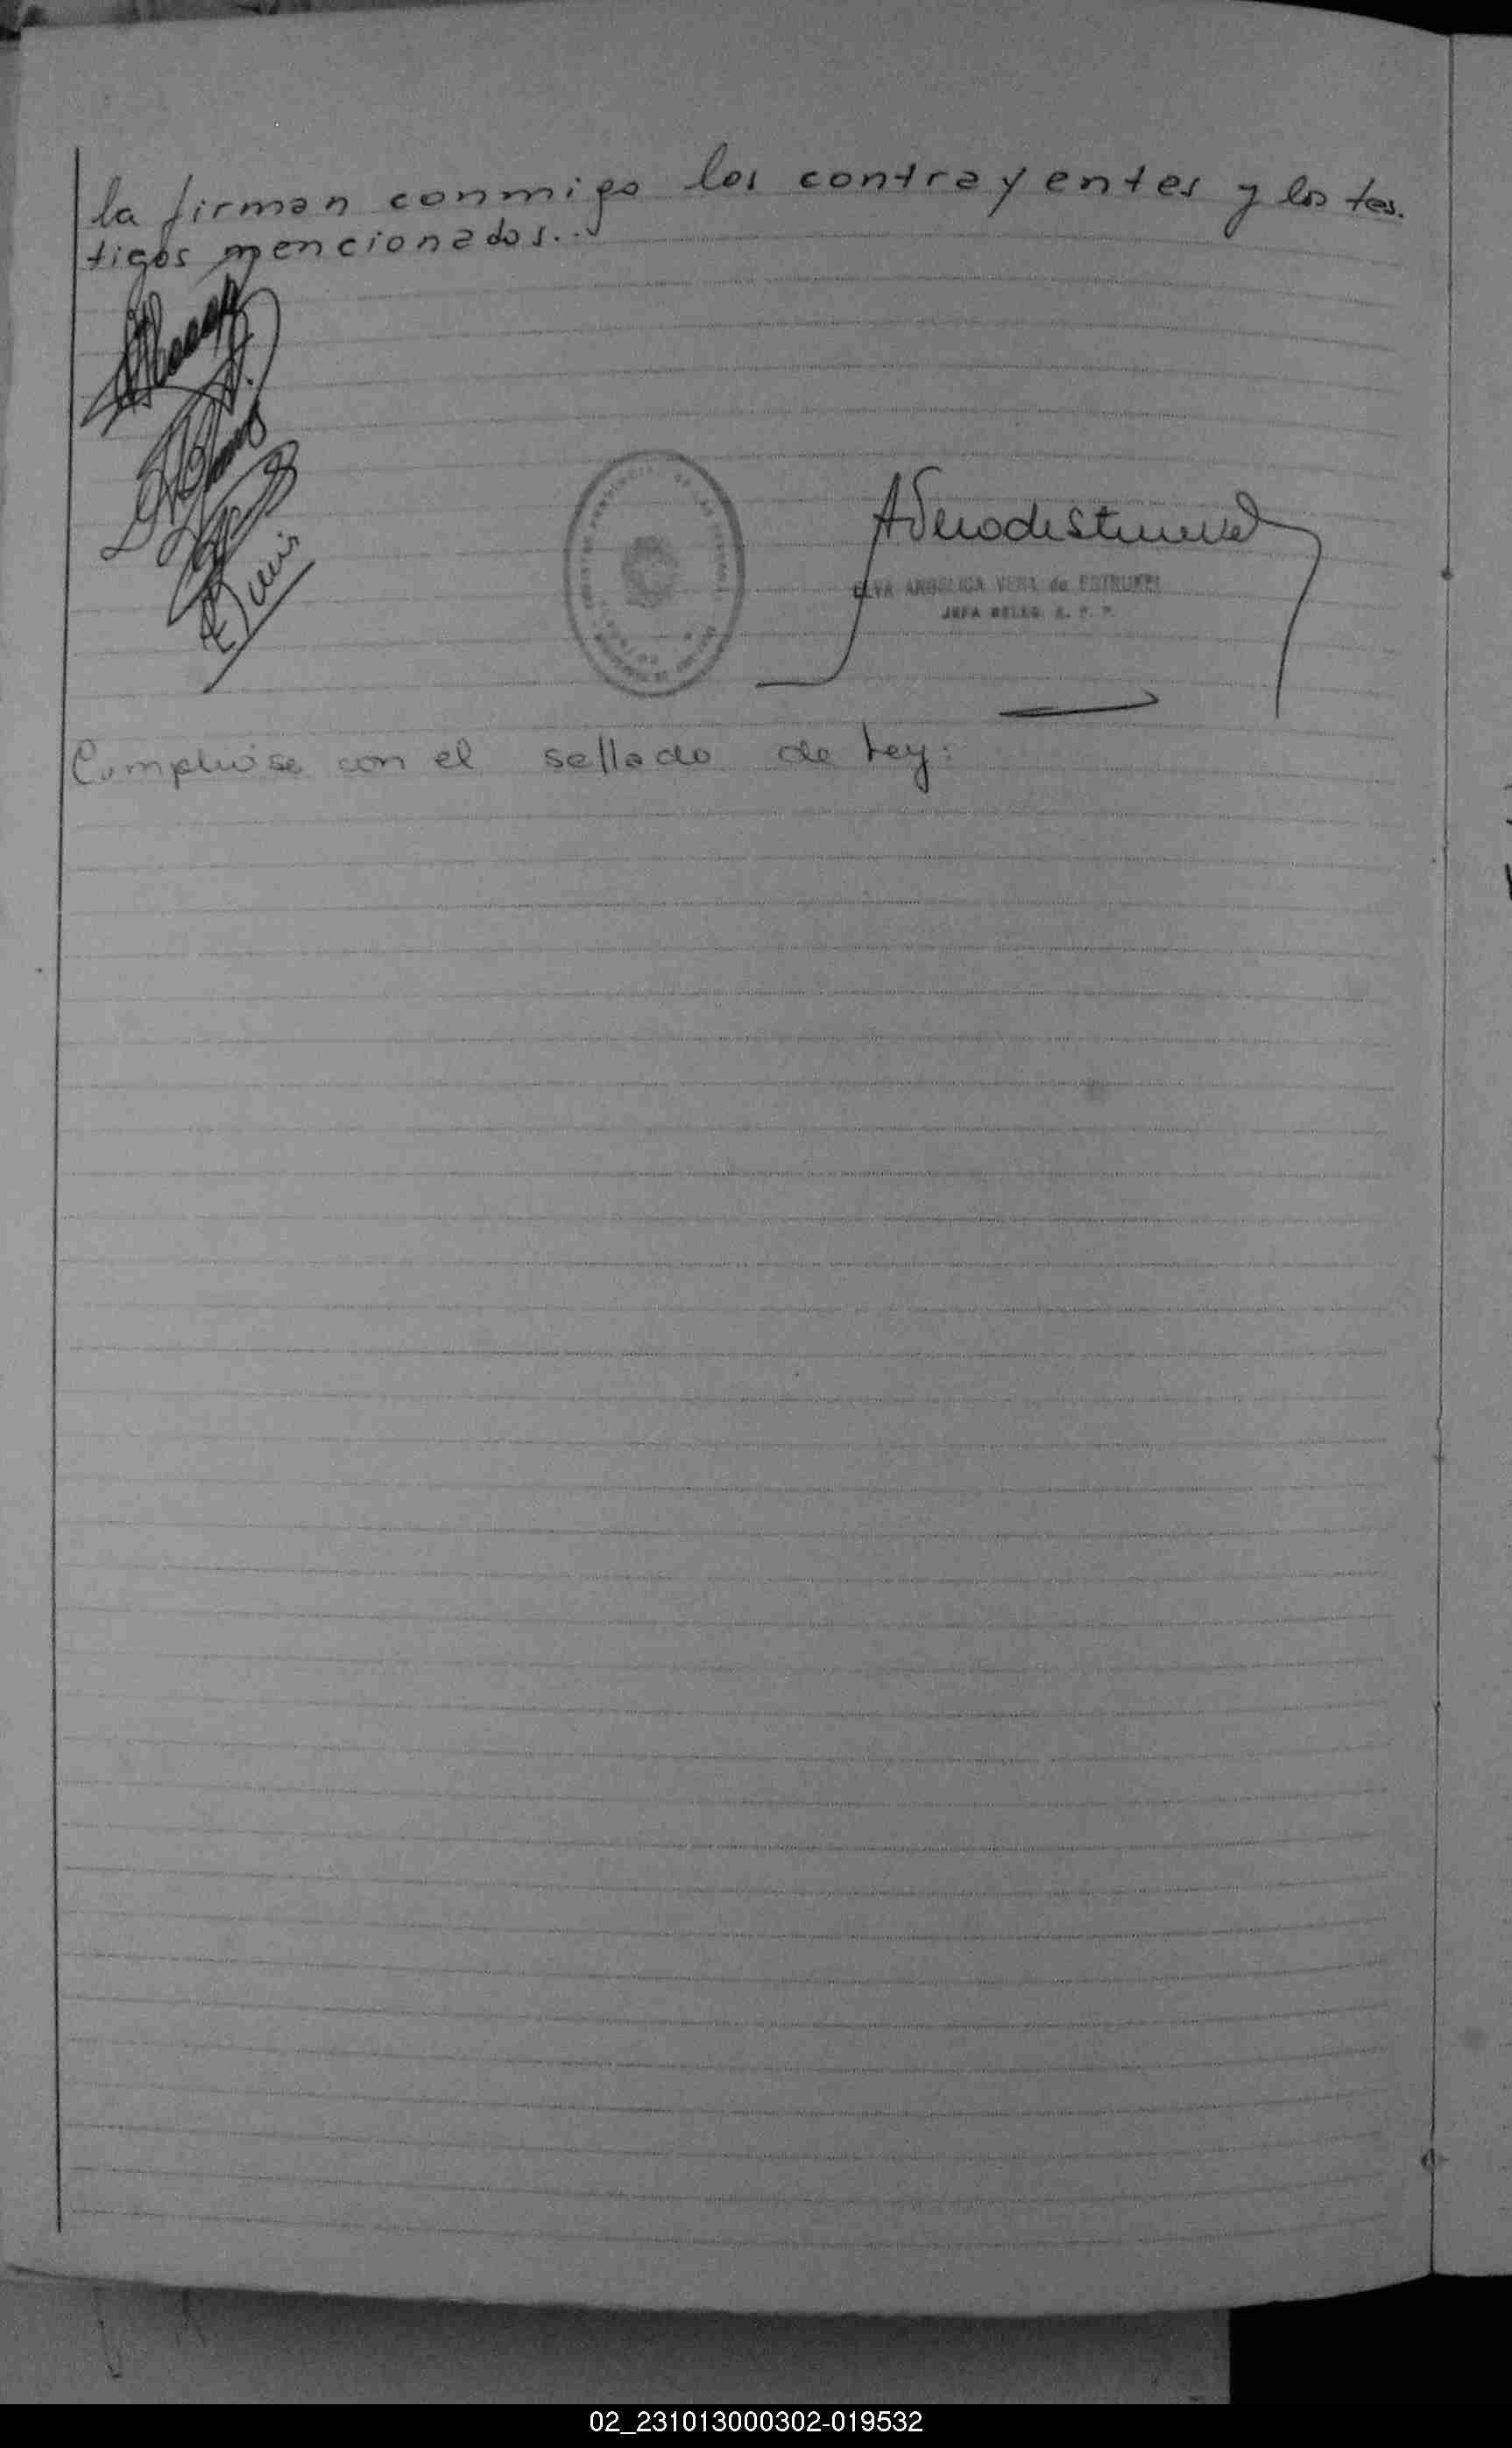 la firman conmigo los contrayentes y los tes.
tigos mencionados...
ELVA ANGELICA VERA de ESTRUKEL
JEFA DELEG. R. P. P.
Cumplióse con el sellado de Ley:
02_231013000302-019532